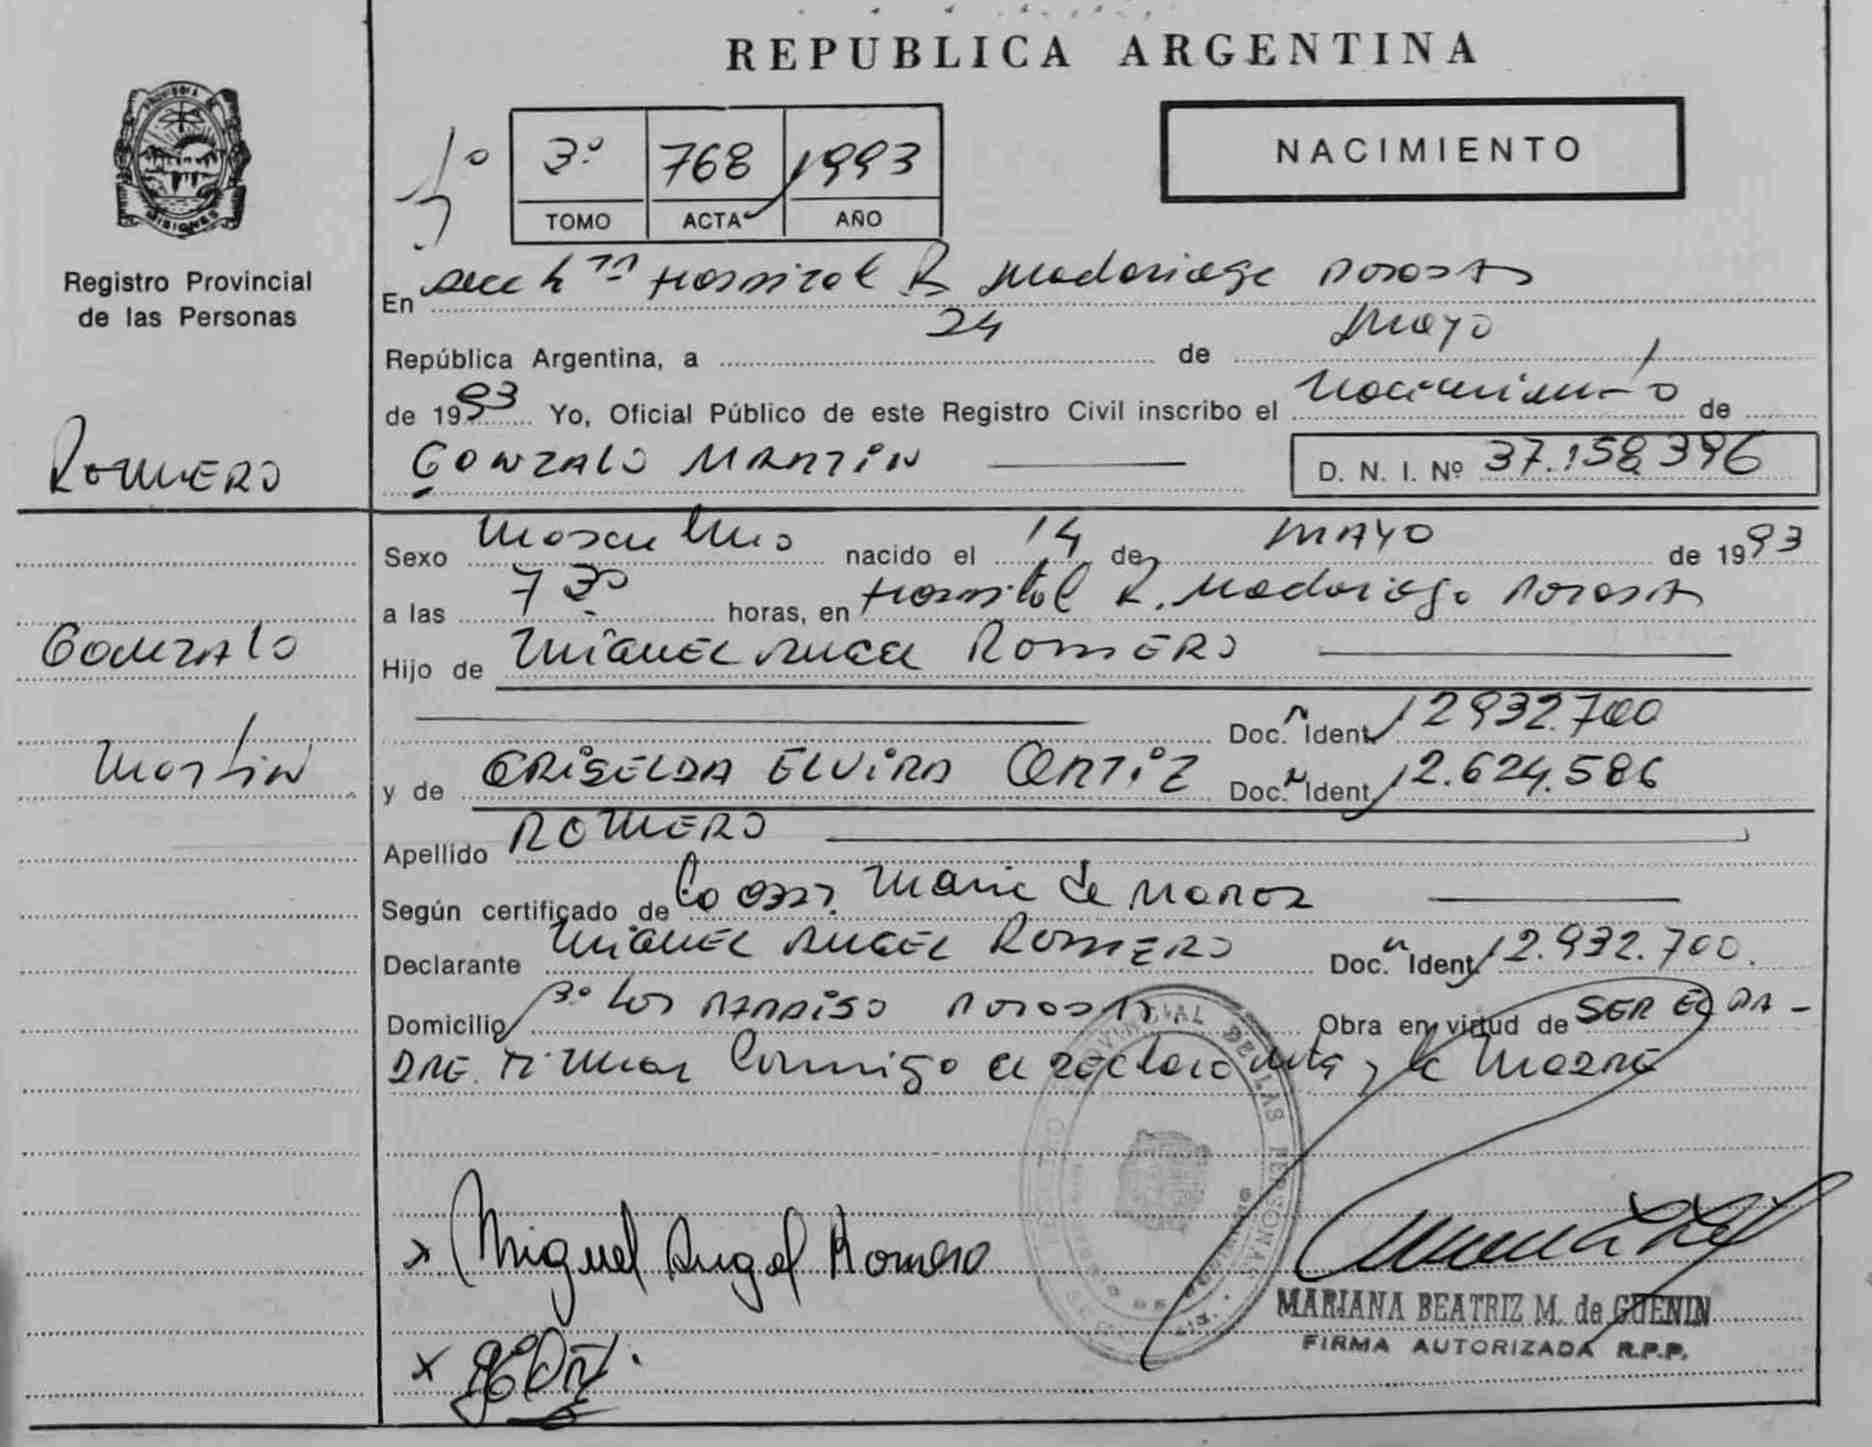 REPUBLICA ARGENTINA
PROVINCIA DE
MISIONES
Registro Provincial
de las Personas
3º 768 1993
TOMO ACTA AÑO
NACIMIENTO
En Secc Hospital R Madariaga Posadas
República Argentina, a 24 de Mayo
de 1993 Yo, Oficial Público de este Registro Civil inscribo el Nacimiento de
GONZALO MARTIN
D. N. I. Nº 37.158.396
ROMERO
Gonzalo
Martin
Sexo Masculino nacido el 14 de MAYO de 1993
a las 7 30 horas, en Hospital R. Madariaga Posadas
Hijo de MIGUEL ANGEL ROMERO
Doc. Ident 12932.700
y de GRISELDA ELVIRA ORTIZ Doc. Ident 12.624.586
Apellido ROMERO
Según certificado de la Maria de
Declarante MIGUEL ANGEL ROMERO Doc. Ident 12.932.700.
Domicilio Bº Los PARAISO POSADAS Obra en virtud de SER EL PA-
DRE. Firman Conmigo el declarante y la Madre
PROVINCIAL DE LAS PERSONAS
Miguel Angel Romero
MARIANA BEATRIZ M. de GUENIN
FIRMA AUTORIZADA R.P.P.